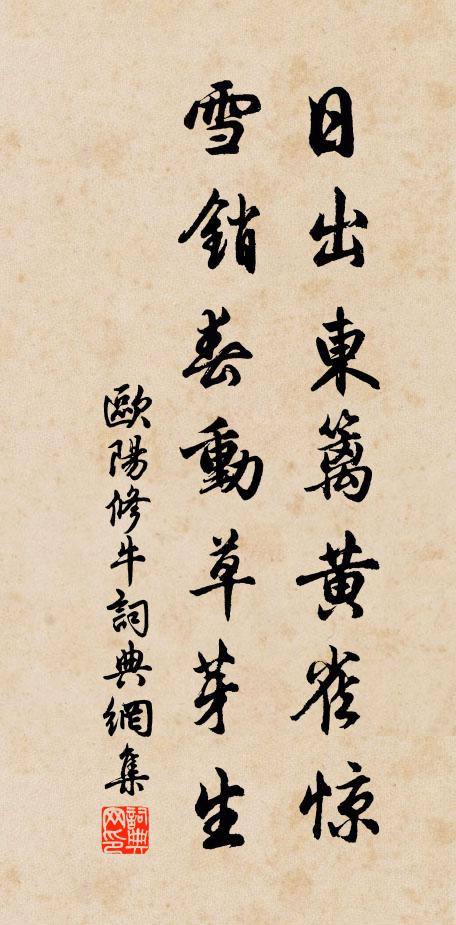 日出東籬黃雀惊
雪銷春動草芽生
歐陽修牛詞典網集
詞典網印